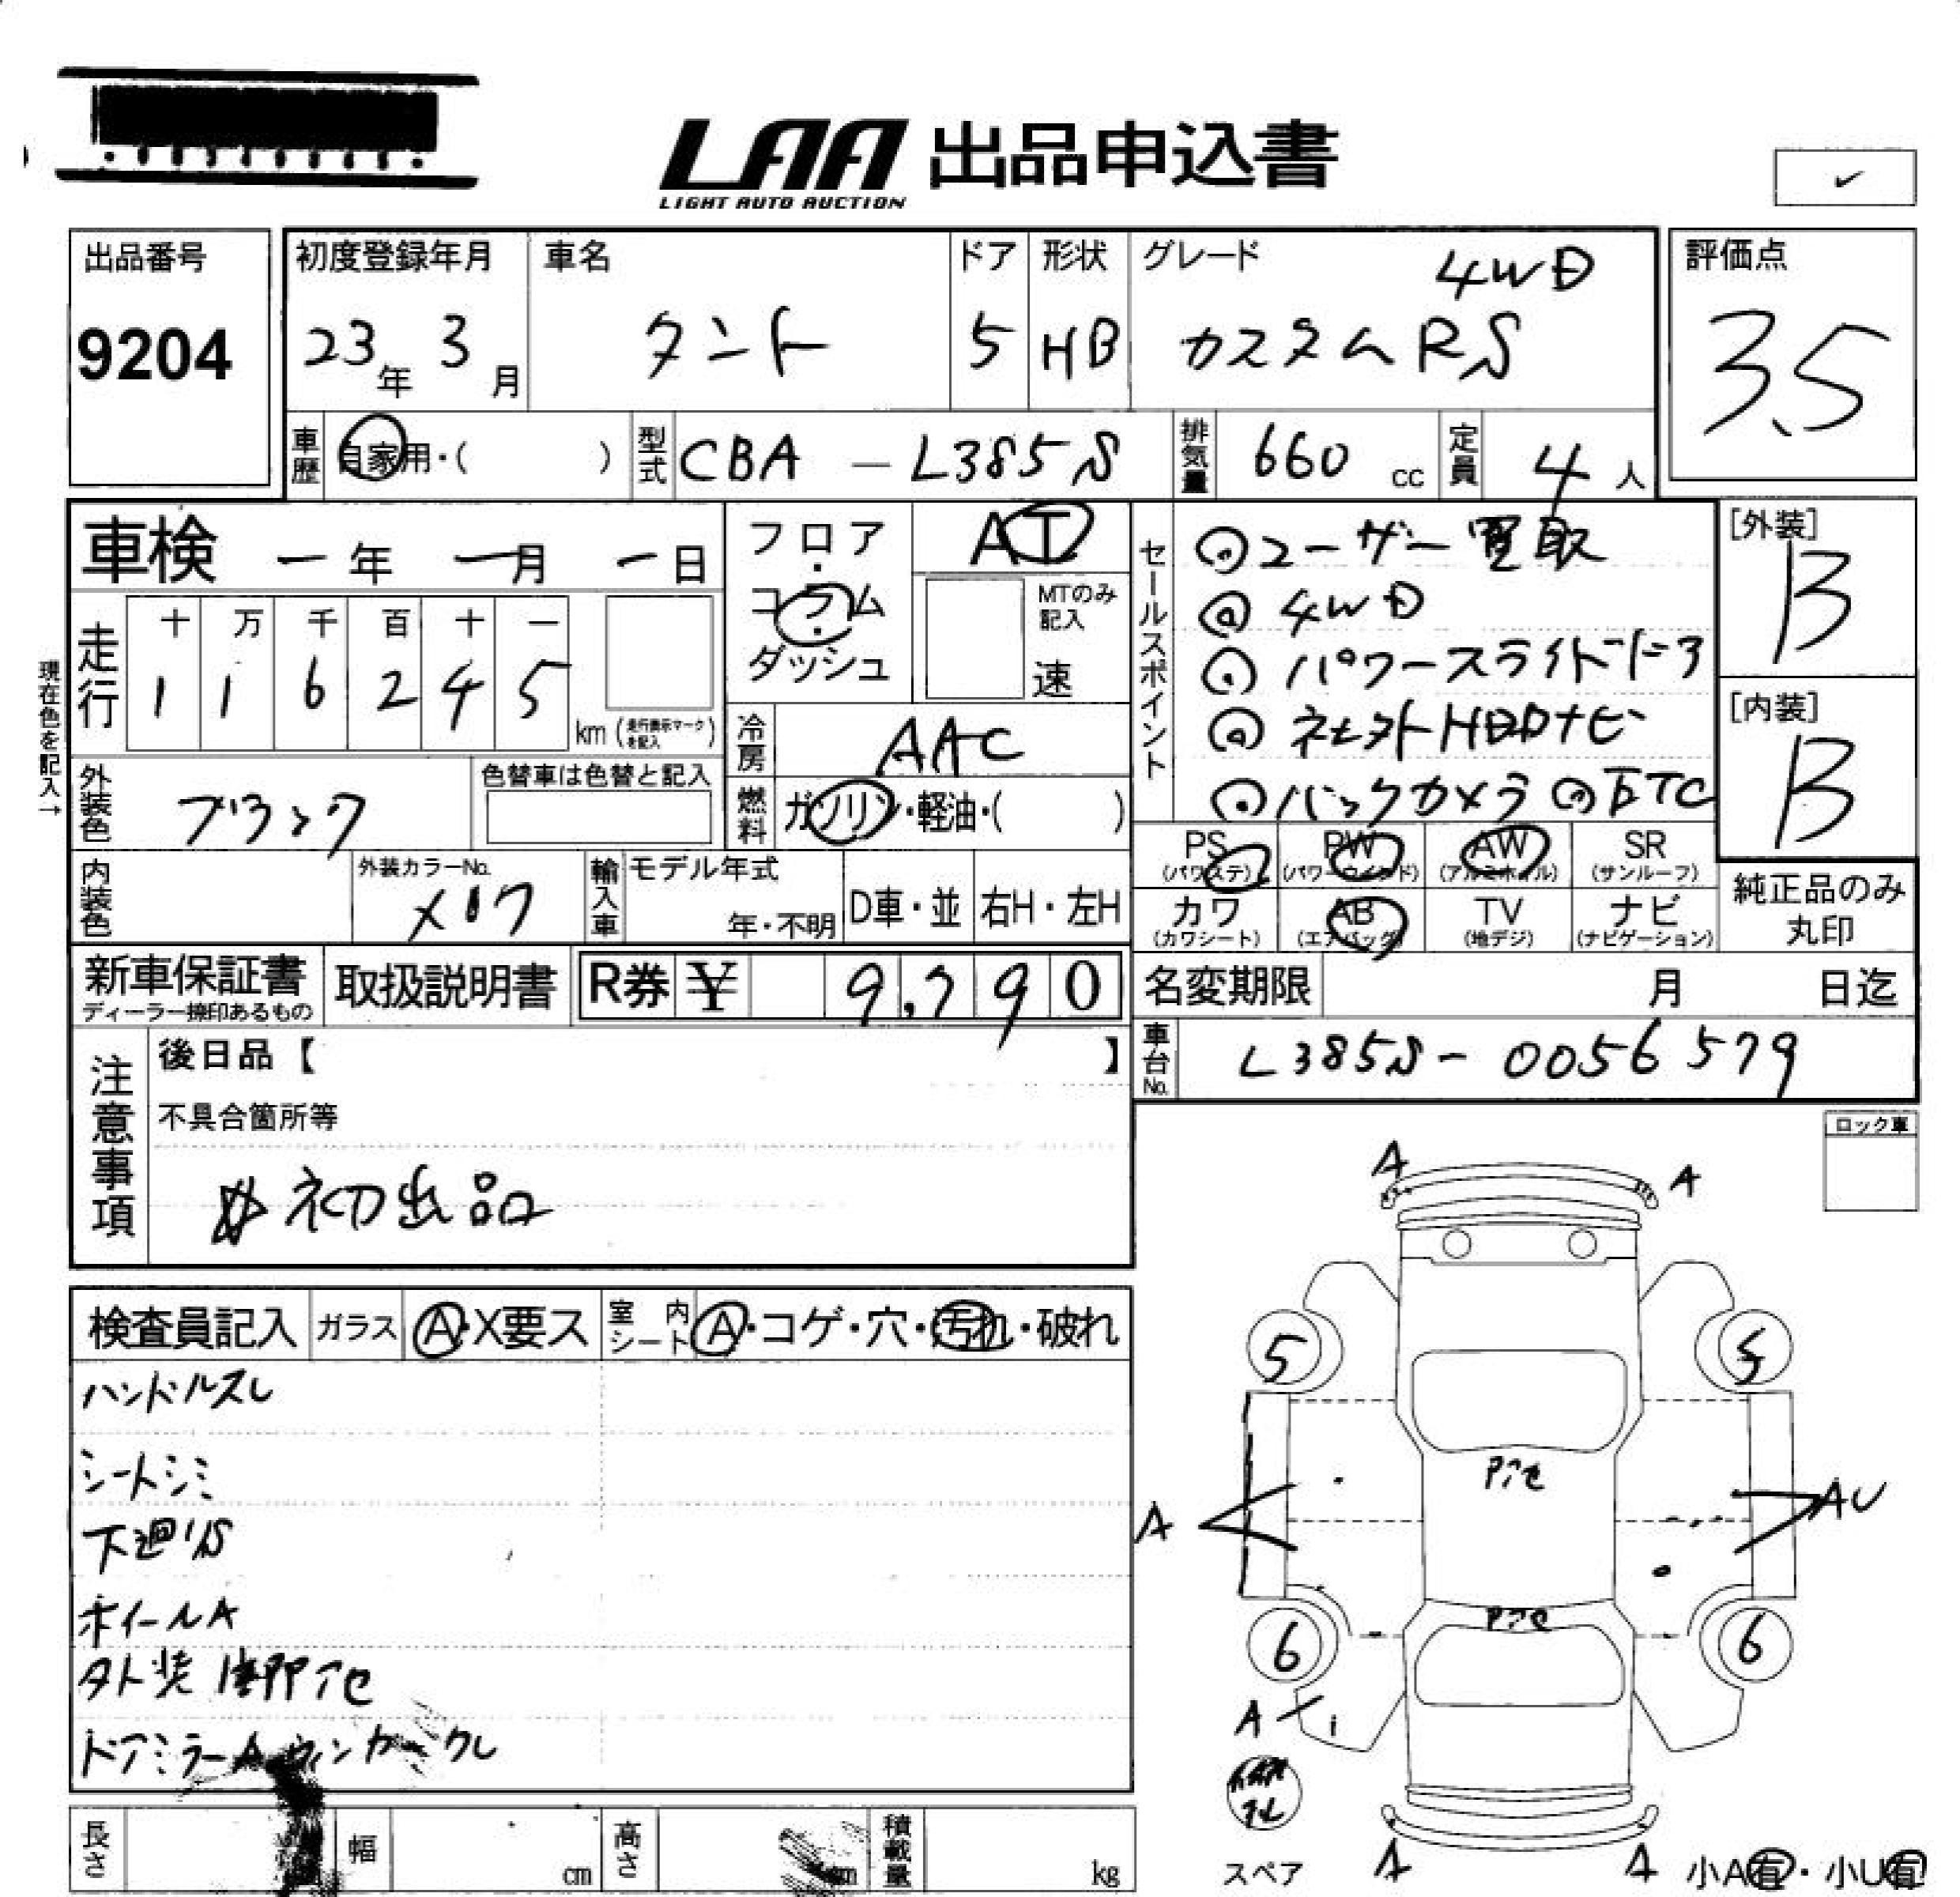 LAA 出品申込書
LIGHT AUTO AUCTION
出品番号
9204
初度登録年月
23年 3月
車名
タント
ドア
5
形状
HB
グレード
4WD
カスタムRS
評価点
3.5
車歴 自家用・( )
型式 CBA - L385S
排気量 660 cc
定員 4 人
車検 ー年 ー月 ー日
現在色を記入→
走行
十 万 千 百 十 一
1 1 6 2 4 5
km (走行表示マークを記入)
フロア・コラム・ダッシュ
AT
MTのみ記入
速
冷房 AAC
燃料 ガソリン・軽油・( )
セールスポイント
ユーザー買取
4WD
パワースライドドア
社外HDDナビ
バックカメラ ETC
[外装]
B
[内装]
B
外装色 ブラック
色替車は色替と記入
内装色
外装カラーNo.
X07
輸入車
モデル年式
年・不明
D車・並
右H・左H
PS
(パワステ)
PW
(パワーウインド)
AW
(アルミホイル)
SR
(サンルーフ)
カワ
(カワシート)
AB
(エアバッグ)
TV
(地デジ)
ナビ
(ナビゲーション)
純正品のみ丸印
新車保証書
ディーラー捺印あるもの
取扱説明書
R券 ¥ 9,790
名変期限 月 日迄
車台No. L385S - 0056579
注意事項
後日品【 】
不具合箇所等
初出品
ロック車
検査員記入
ガラス
A・X要ス
室内シート
A・コゲ・穴・汚れ・破れ
ハンドルスレ
シートシミ
下廻りS
ホイールA
外装 アセ
ドアミラーA ウィンカー クレ
A A
5 5
Pアセ
A AU
Pアセ
6 6
A
スペア
A A
小A有・小U有
長さ
幅 cm
高さ cm
積載量 kg